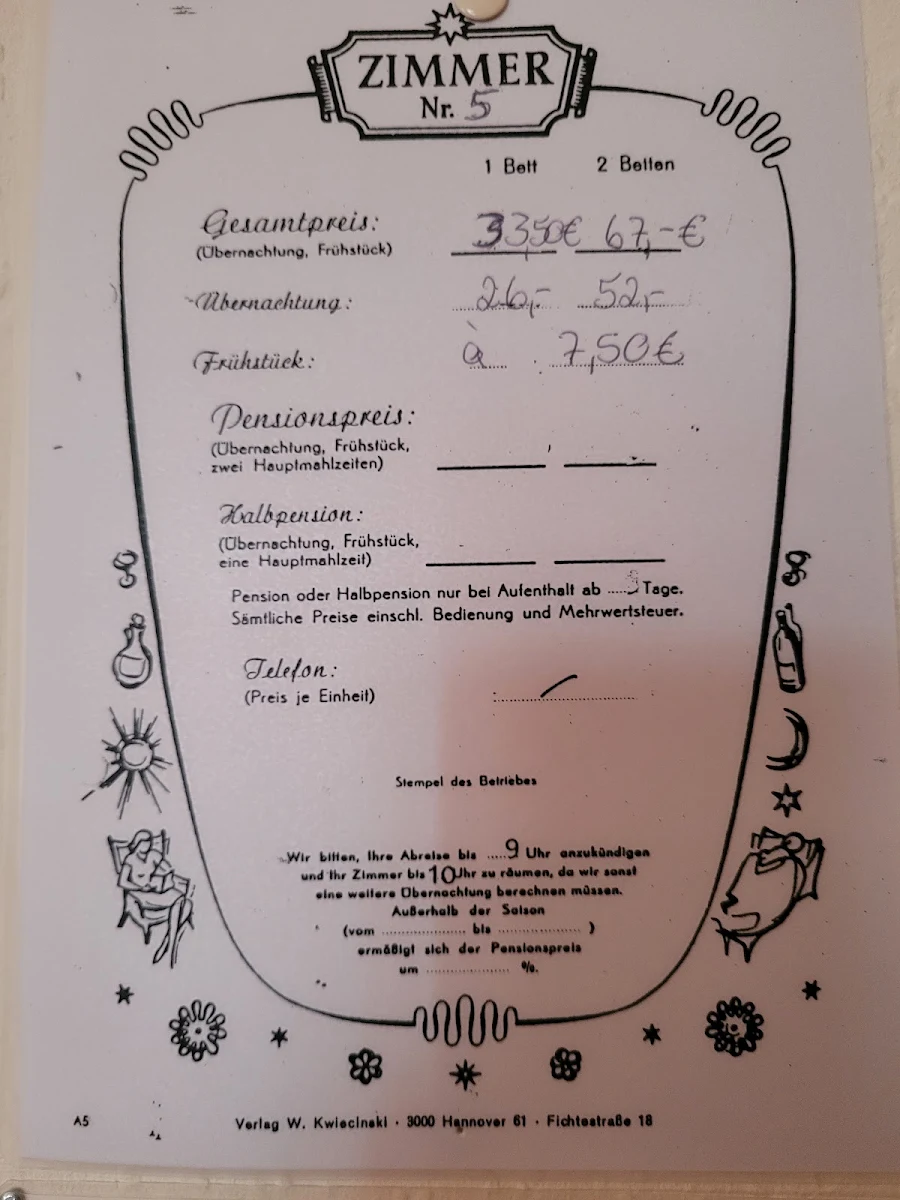 ZIMMER
Nr. 5
1 Bett 2 Betten
Gesamtpreis: 33,50€ 67,-€
(Übernachtung, Frühstück)
Übernachtung: 26,- 52,-
Frühstück: à 7,50€
Pensionspreis:
(Übernachtung, Frühstück,
zwei Hauptmahlzeiten)
Halbpension:
(Übernachtung, Frühstück,
eine Hauptmahlzeit)
Pension oder Halbpension nur bei Aufenthalt ab ..... Tage.
Sämtliche Preise einschl. Bedienung und Mehrwertsteuer.
Telefon:
(Preis je Einheit)
Stempel des Betriebes
Wir bitten, Ihre Abreise bis .....9 Uhr anzukündigen
und Ihr Zimmer bis 10 Uhr zu räumen, da wir sonst
eine weitere Übernachtung berechnen müssen.
Außerhalb der Saison
(vom .................... bis .................... )
ermäßigt sich der Pensionspreis
um .................... %.
A5 Verlag W. Kwiecinski · 3000 Hannover 61 · Fichtestraße 18